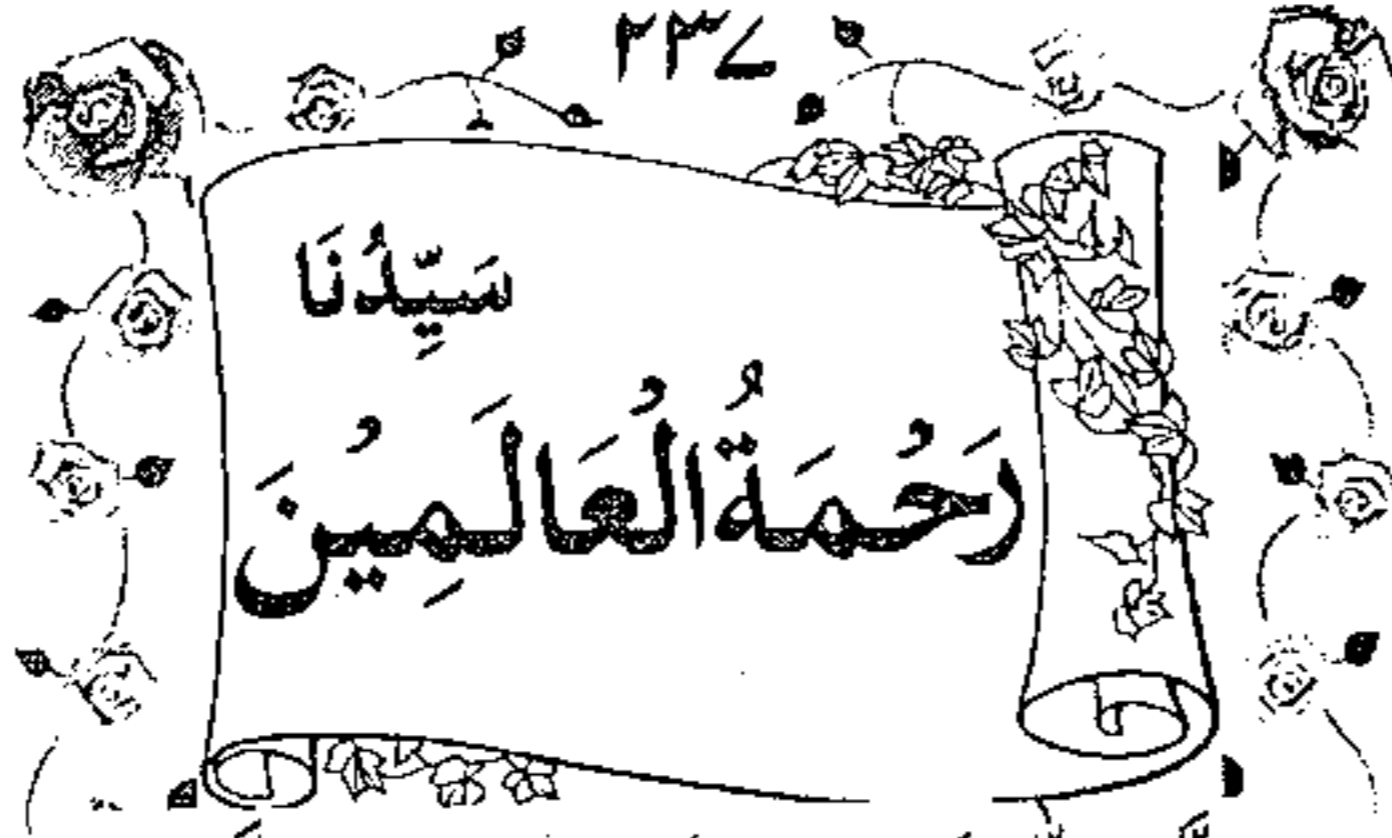 ۲۳۷
سَيِّدُنَا
رَحْمَةُ الْعَالَمِيْنَ